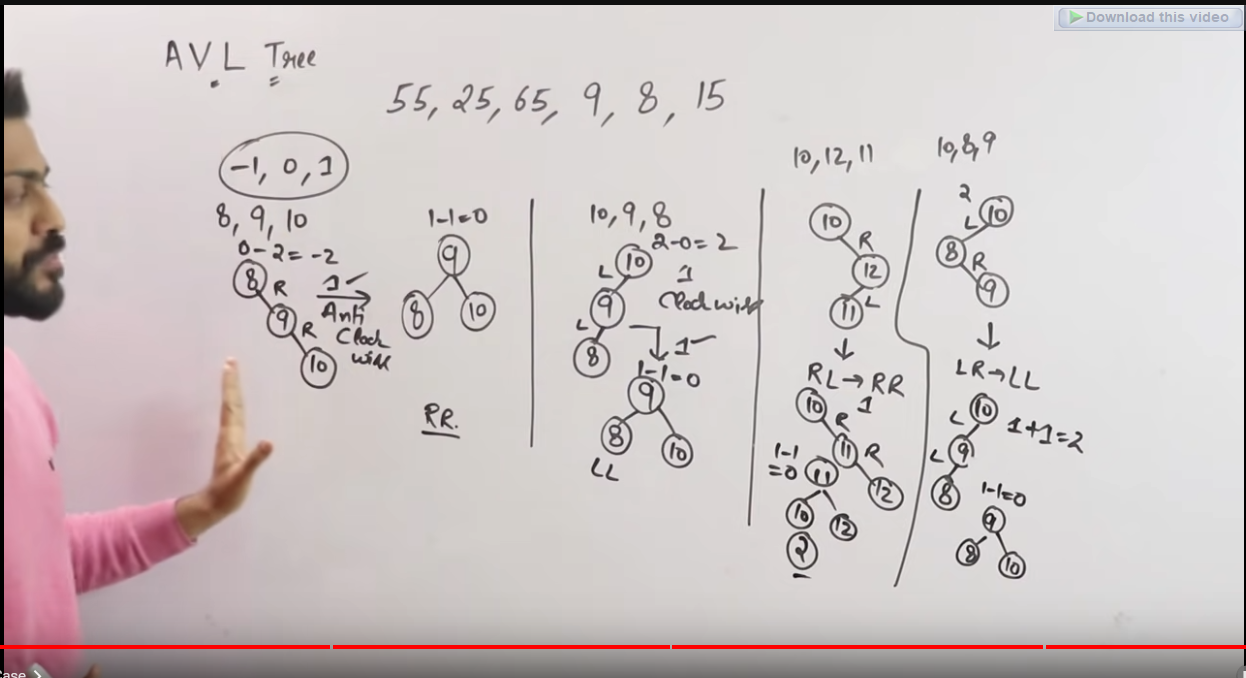 Download this video
AVL Tree
55, 25, 65, 9, 8, 15
-1, 0, 1
8, 9, 10
0-2=-2
8
R
9
R
10
1
Anti
Clock
wise
1-1=0
9
8 10
RR.
10, 9, 8
2-0=2
10
L
9
L
8
1
Clockwise
1
1-1=0
9
8
10
LL
10, 12, 11
10
R
12
L
11
RL→RR
1
10
R
11
R
12
1-1
=0
11
10
12
2
10, 8, 9
2
10
L
8
R
9
LR→LL
10
L
9
L
8
1+1=2
1-1=0
9
8
10
Case